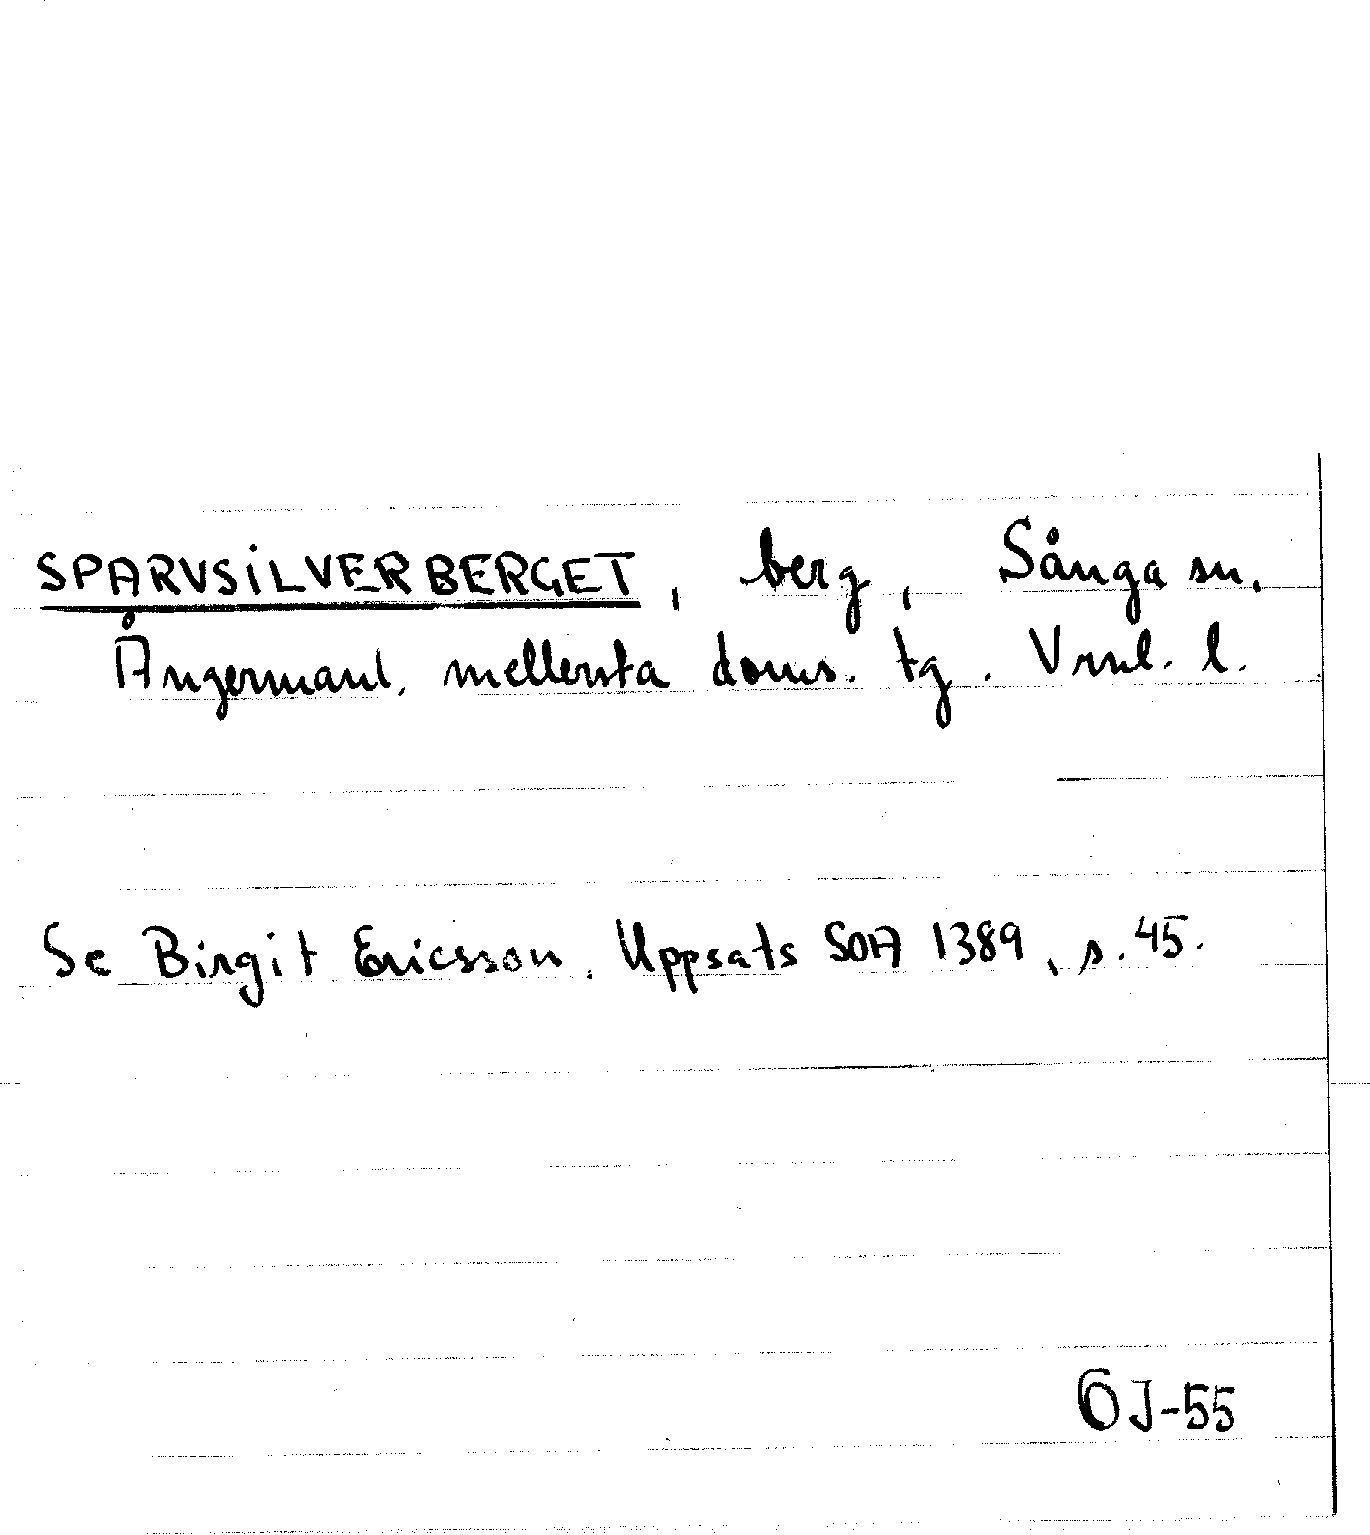 SPARVSILVERBERGET, berg, Sånga sn.
Ångermanl. mellersta doms. tg. Vrnl. l.
Se Birgit Ericsson. Uppsats SOA 1389, s. 45.
OJ-55